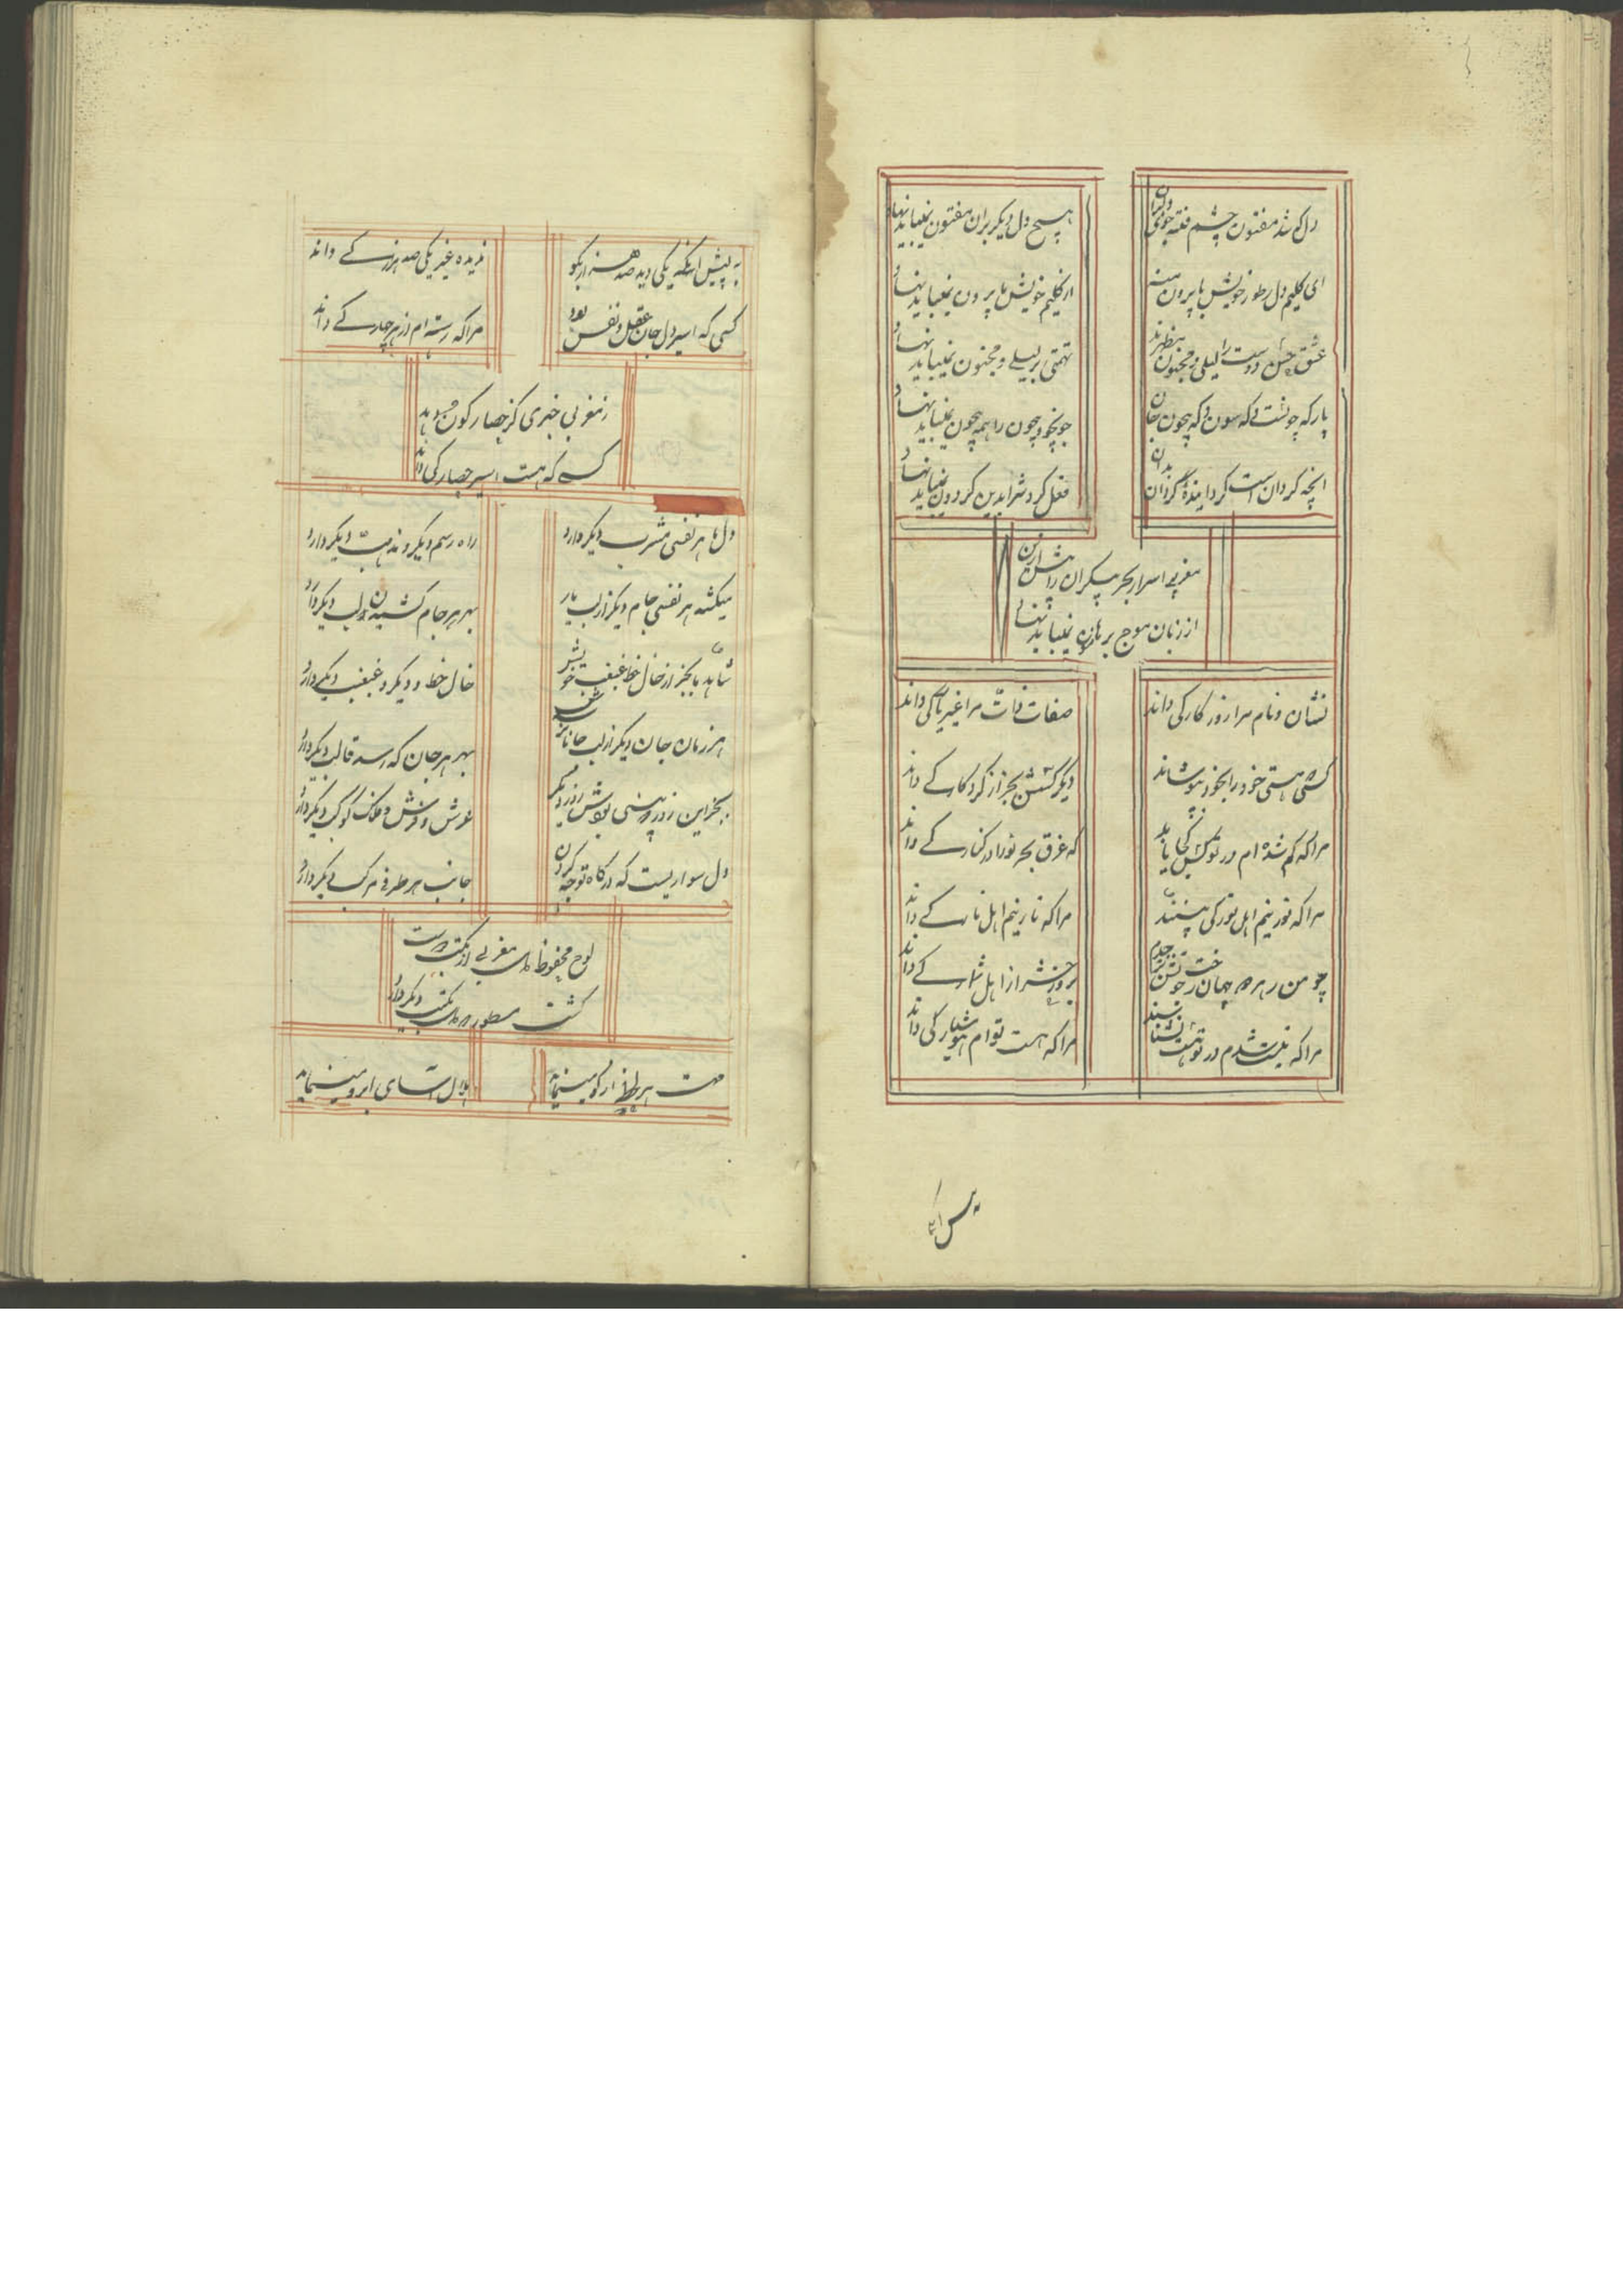 دل که شد مفتون چشم فتنه جوی دلبران
هیچ دل دیگر بران مفتون نمیباید نهاد
ای کلیم دل ز طور خویش پا بیرون منه
از کلیم خویش پا بیرون نمیباید نهاد
عشق حسن دوست را لیلی و مجنون مظهرند
تهمتی بر لیلی و مجنون نمیباید نهاد
یار که چونست که بیچون جان
چون را همه چون نمیباید نهاد
انچه گردان است گرداننده گردان بدان
فعل گردش را بدین گردون نمیباید نهاد
مغربی اسرار بحر بیکران را
از زبان موج بر هامون نمیباید نهاد
نشان و نام مرا روزگار کی داند
صفات ذات مرا غیر یار کی داند
کسی هستی خود را بخود بپوشاند
دیگر کسش بجز از کردگار کی داند
مرا که گم شده ام در تو کس کجا یابد
که غرق بحر تو را در کنار کی داند
مرا که نور نیم اهل نور کی بینند
مرا که نار نیم اهل نار کی داند
چو من ز هر دو جهان رخت خویشتن بردم
بروز حشر از اهل شمار کی داند
مرا که نیست شدم در تو هست نشناسند
مرا که مست توام هوشیار کی داند
به پیش انکه یکی دید صد هزار بگو
ندیده غیر یکی صد هزار کی داند
کسی که اسیر دل جان عقل و نفس بود
مرا که رسته ام از هر چهار کی داند
ز مغربی خبری کز حصار کون
کسی که هست اسیر حصار کی داند
دل ما هر نفسی مشرب دیگر دارد
راه رسم دیگر و مذهب دیگر دارد
میکشد هر نفسی جام دیگر از لب یار
بهر هر جام کشیدن لب دیگر دارد
شاهد ما بجز از خال خط غبغب خویش
خال خط و دیگر و غبغب دیگر دارد
هر زمان جان دیگر از لب جانان
بهر هر جان که رسد قالب دیگر دارد
بجز این روز که بینی بودش روز دیگر
عرش و فرش و فلک کوکب دیگر دارد
دل سواریست که در گاه توجه کردن
جانب هر طرفی مرکب دیگر دارد
لوح محفوظ مغربی از مکتب
گشت مسطور مکتب دیگر دارد
هر لحظه
هلال آسای ابرو مینماید